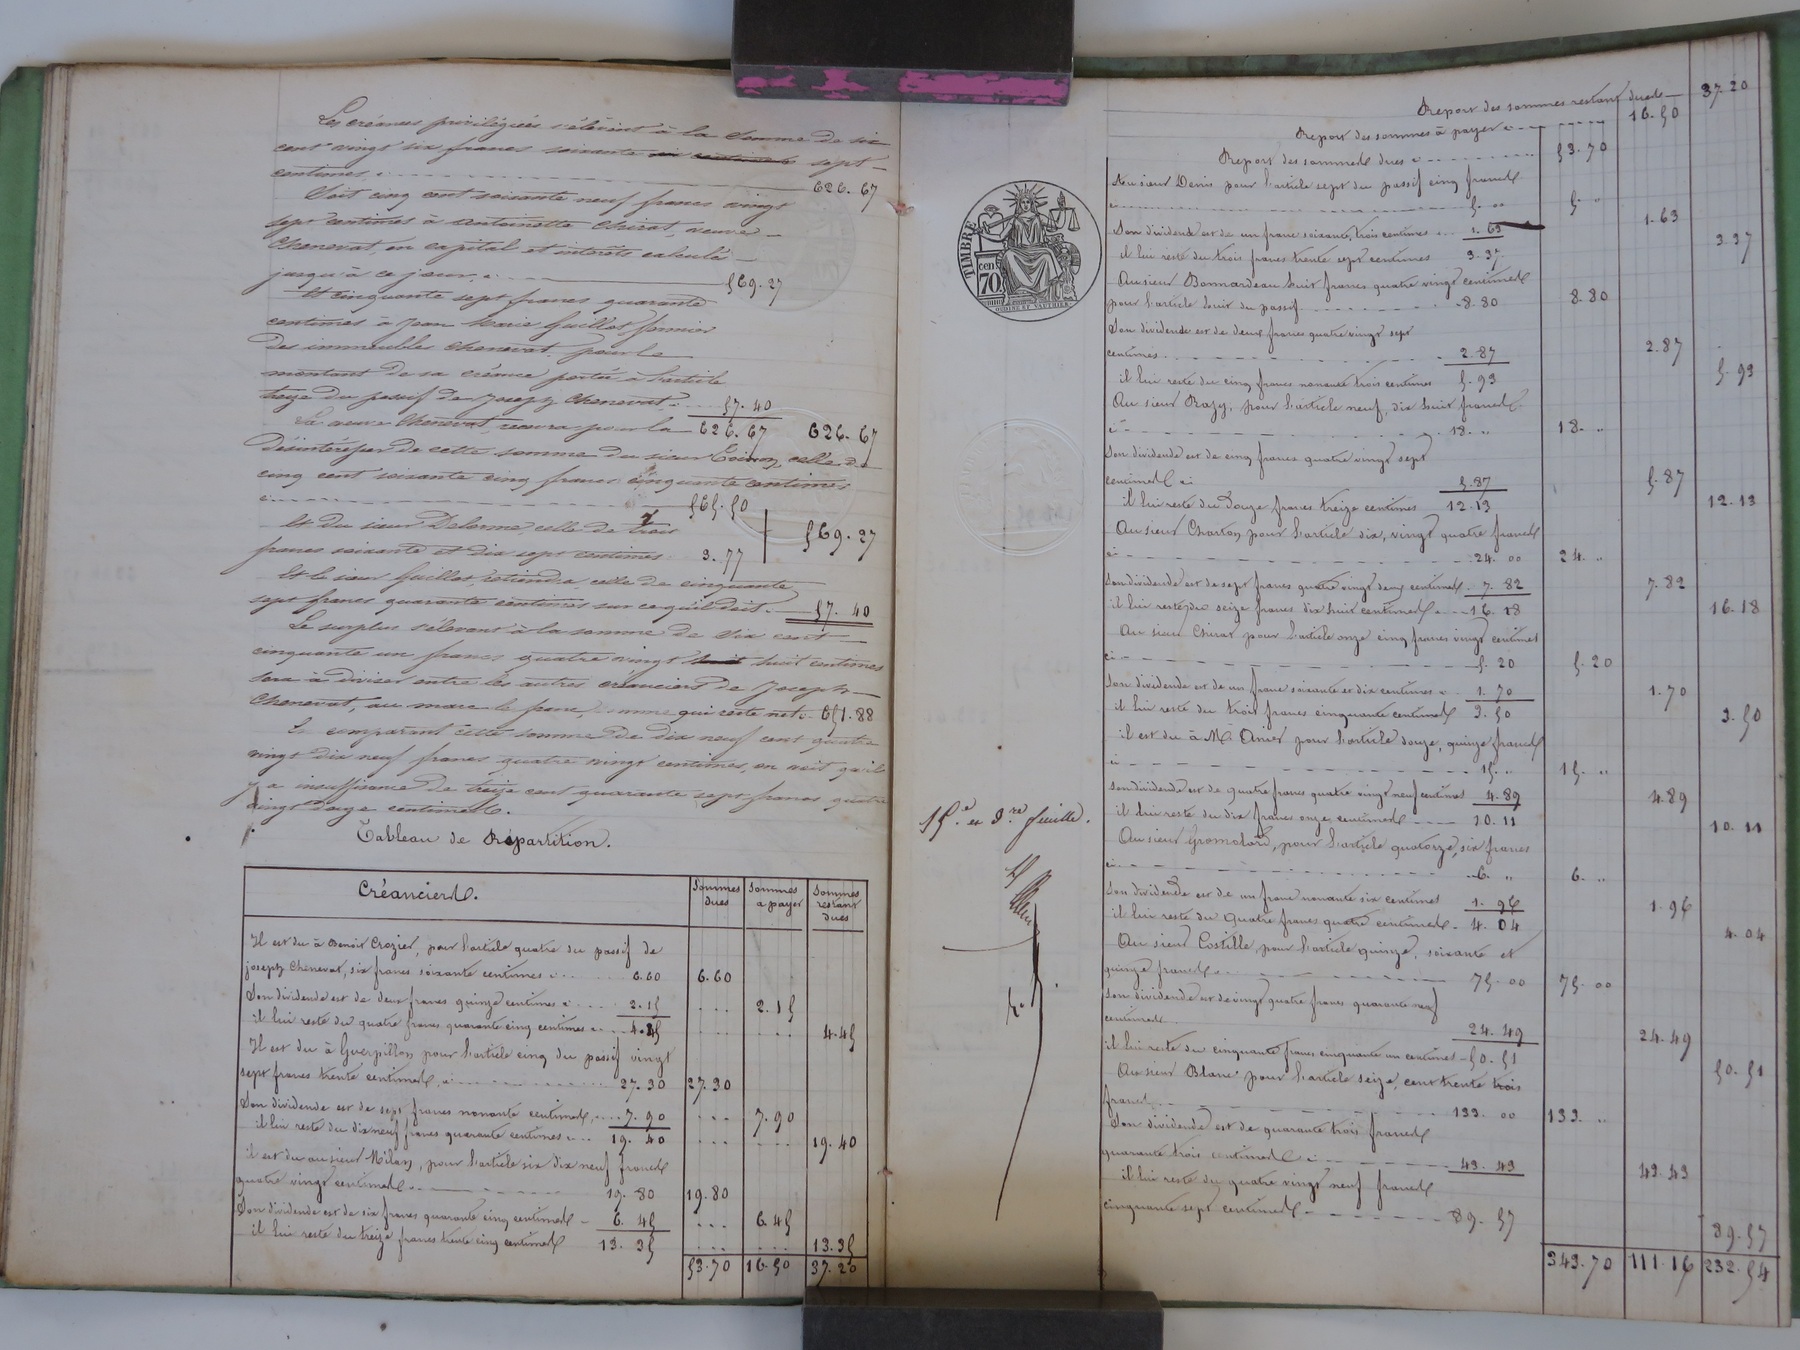 Les créances privilégiées s'élèvent à la somme de six
cent vingt six francs soixante sept
centimes ci 626.67
Soit cinq cent soixante neuf francs vingt
sept centimes à Antoinette Chirat, veuve
Chenevat, en capital et intérêts calculé
jusqu'à ce jour, ci 569.27
Et cinquante sept francs quarante
centimes à Jean Marie Guillot fermier
des immeubles Chenevat, pour le
montant de sa créance portée à l'article
treize du passif de Joseph Chenevat. 57.40
La veuve Chenevat, pour la 626.67 626.67
Désintéresser de cette somme du sieur celle de
cinq cent soixante cinq francs cinquante centimes
ci 565.50
Et du sieur Delorme, celle de trois 569.27
francs soixante et dix sept centimes 3.77
Et le sieur Guillot, retiendra celle de cinquante
sept francs quarante centimes sur ce qu'il doit. 57.40
Le surplus s'élevant à la somme de six cent
cinquante un francs quatre vingt huit centimes
sera à diviser entre les autres créanciers de Joseph
Chenevat, au marc le franc, somme qui reste net. 651.88
En comparant cette somme de dix neuf cent quatre
vingt dix neuf francs quatre vingt centimes, on voit qu'il
y a insuffisance de treize cent quarante sept francs quatre
vingt douze centimes.
Tableau de Répartition.
Créanciers. Sommes dues Sommes a payer Sommes restant dues
Il est du à Benoit Crozier, pour l'article quatre du passif de
joseph Chenevat, six francs soixante centimes ci 6.60 6.60
Son dividende est de deux francs quinze centimes ci 2.15 2.15
il lui reste du quatre francs quarante cinq centimes ci 4.45 4.45
Il est du à Guerpillon pour l'article cinq du passif vingt
sept francs trente centimes, ci 27.30 27.30
Son dividende est de sept francs nonante centimes, 7.90 7.90
il lui reste du dix neuf francs quarante centimes ci 19.40 19.40
il est du au sieur Milan, pour l'article six dix neuf francs
quatre vingt centimes 19.80 19.80
Son dividende est de six francs quarante cinq centimes 6.45 6.45
il lui reste du treize francs trente cinq centimes 13.35 13.35
53.70 16.50 37.20
TIMBRE
cen.
70.
OUDINÉ ET VAUTHIER
15.e et 3.re feuille.
Report des sommes restant dues 37.20
Report des sommes à payer ci 16.50
Report des sommes dues ci 53.70
Au sieur Denis pour l'article sept du passif cinq francs
5. " 5. "
Son dividende est de un franc soixante trois centimes 1.63 1.63
il lui reste du trois francs trente sept centimes 3.37 3.37
Au sieur Bonnardeau huit francs quatre vingt centimes
pour l'article huit du passif 8.80 8.80
Son dividende est de deux francs quatre vingt sept
centimes 2.87 2.87
il lui reste du cinq francs nonante trois centimes 5.93 5.93
Au sieur Razy, pour l'article neuf, dix huit francs
ci 18. " 18. "
Son dividende est de cinq francs quatre vingt sept
centimes ci 5.87 5.87
il lui reste du Douze francs treize centimes 12.13 12.13
Au sieur Charton pour l'article dix, vingt quatre francs
ci 24.00 24. "
Son dividende est de sept francs quatre vingt deux centimes 7.82 7.82
il lui reste du seize francs dix huit centimes ci 16.18 16.18
Au sieur Chirat pour l'article onze cinq francs vingt centimes
ci 5.20 5.20
Son dividende est de un franc soixante et dix centimes ci 1.70 1.70
il lui reste du trois francs cinquante centimes 3.50 3.50
il est du à M. pour l'article douze, quinze francs
ci 15. " 15. "
Son dividende est de quatre francs quatre vingt neuf centimes 4.89 4.89
il lui reste du dix francs onze centimes 10.11 10.11
Au sieur Gromolard, pour l'article quatorze, six francs
ci 6. " 6. "
Son dividende est de un franc nonante six centimes 1.96 1.96
il lui reste du Quatre francs quatre centimes 4.04 4.04
Au sieur Costille, pour l'article quinze, soixante et
quinze francs 75.00 75.00
Son dividende est de vingt quatre francs quarante neuf
centimes 24.49 24.49
il lui reste du cinquante francs cinquante un centimes 50.51 50.51
Au sieur Blanc pour l'article seize, cent trente trois
francs 133.00 133. "
Son dividende est de quarante trois francs
quarante trois centimes ci 43.43 43.43
il lui reste du quatre vingt neuf francs
cinquante sept centimes 89.57 89.57
343.70 111.16 232.54